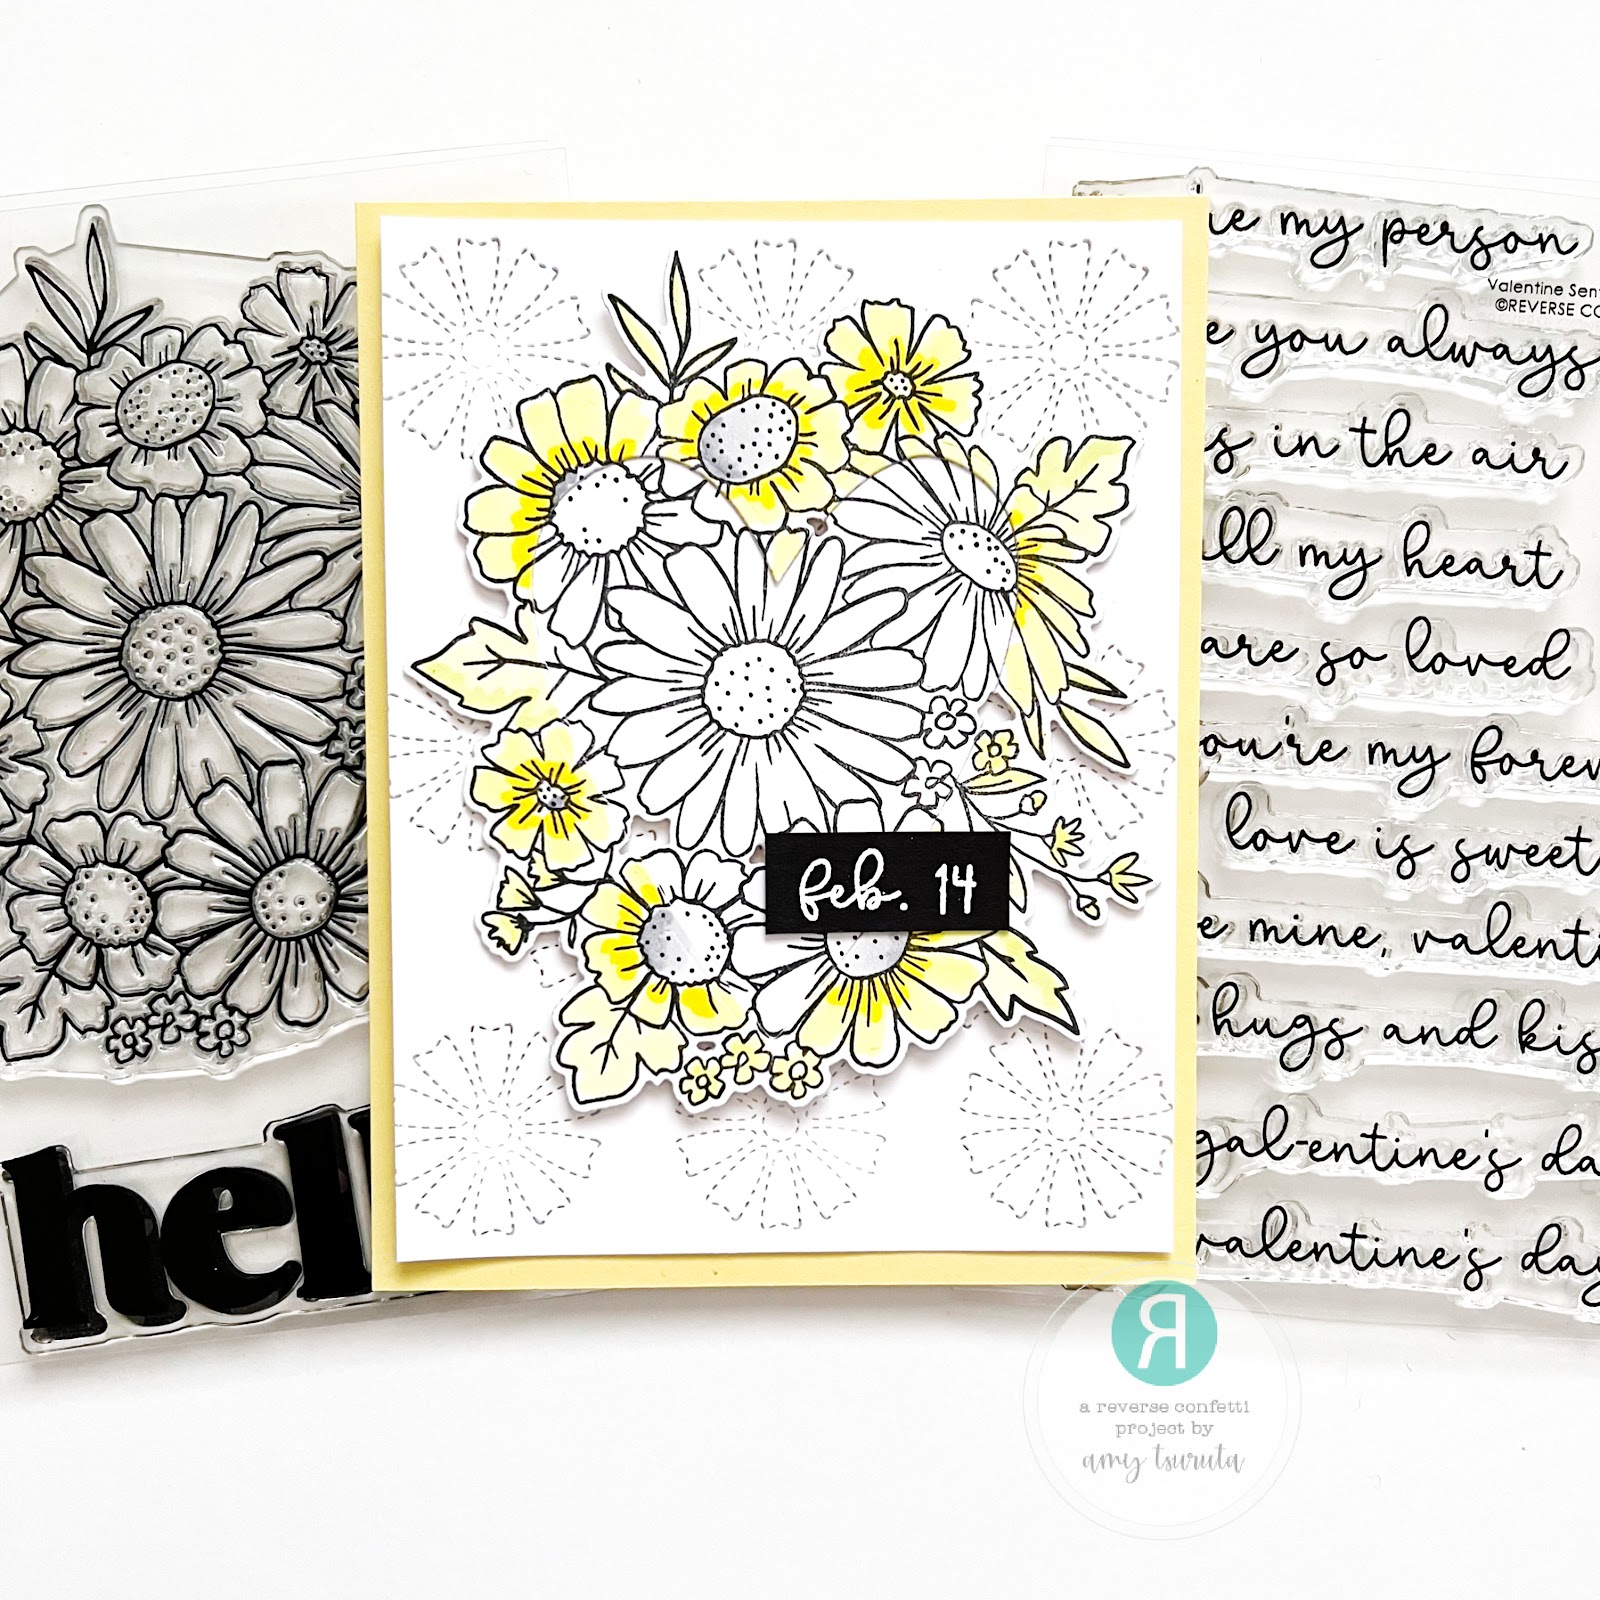 hel
feb. 14
me my person
Valentine Sent
©REVERSE CO
you always
in the air
all my heart
are so loved
you're my forev
love is sweet
mine, valenti
hugs and kis
gal-entine's da
valentine's day
R
a reverse confetti
project by
amy tsuruta